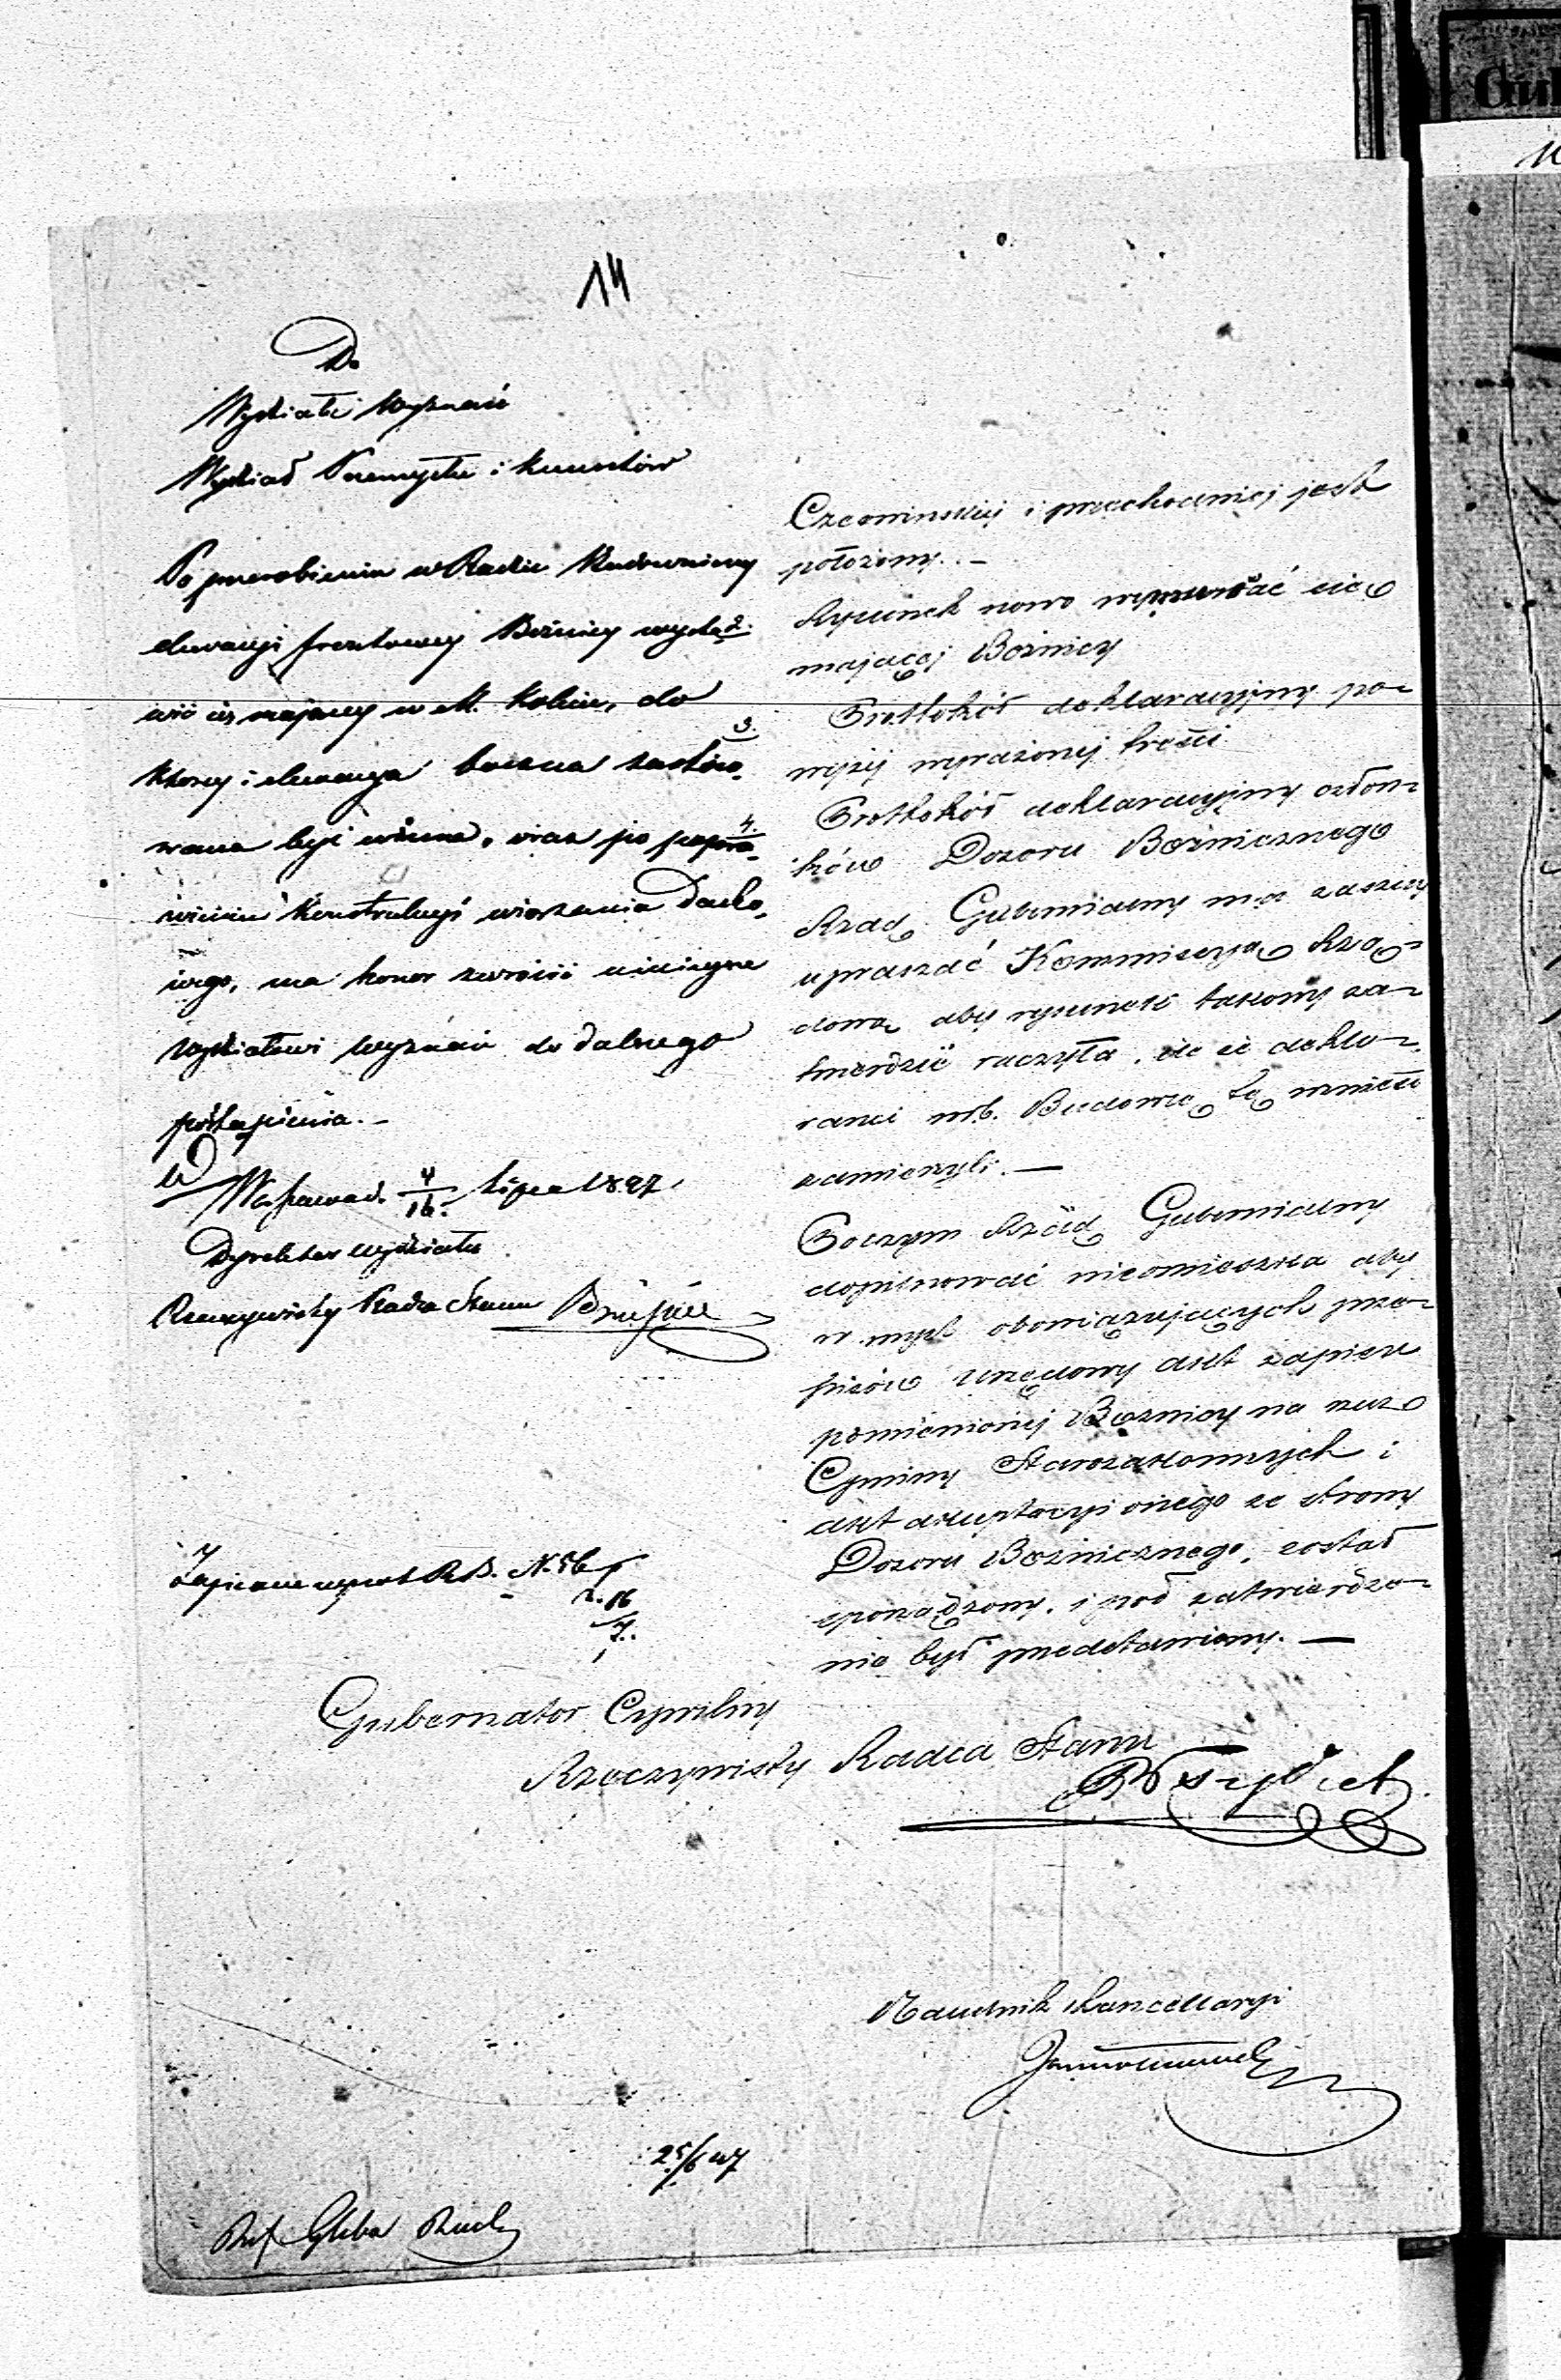 14
Do
Wydziału Wyznań
Wydział Przemysłu i Kunsztów
Po przerobieniu w Radzie Budowniczej
elewacyi frontowey Bóżnicy wysta
wić się mającey w M. Kole, do
którey i elewacya boczna zastóso
waną być winna, oraz po popra
wieniu Konstrukcyi wiązania Dacho
wego, ma honor zwrócić niniejsze
Wydziałowi Wyznań do dalszego
postąpienia. –
w Warszawie d. 4/16 Lipca 1847.
Dyrektor Wydziału
Rzeczywisty Radca Stanu
Zapisano R.B. N. 56
d. 16/7.
2.
3.
4.
i przechodniej jest
położony. –
Rysunek nowo wymurować się
mającej Bożnicy
Protokół deklaracyjny po=
wyżej wyrażonej treści
Protokół deklaracyjny człon=
ków Dozoru Bożnicznego
Rząd Gubernialny ma zaszczyt
upraszać Kommissyą Rzą=
dową aby rysunek takowy za=
twierdzić raczyła, ile że dekla=
ranci Budowę tę wznieść
zamierzyli. —
Poczym Rząd Gubernialny
dopilnować nieomieszka aby
w myśl obowiązujących prze=
pisów urzędowy akt zapisu
pomienionej Bożnicy na rzecz
Gminy Starozakonnych i
akt akceptacyi onego ze strony
Dozoru Bożnicznego, został
sporządzony, i pod zatwierdze=
nie był przedstawiony. —
Gubernator Cywilny
Rzeczywisty Radca Stanu
Naczelnik Kancellaryi
25/6 47